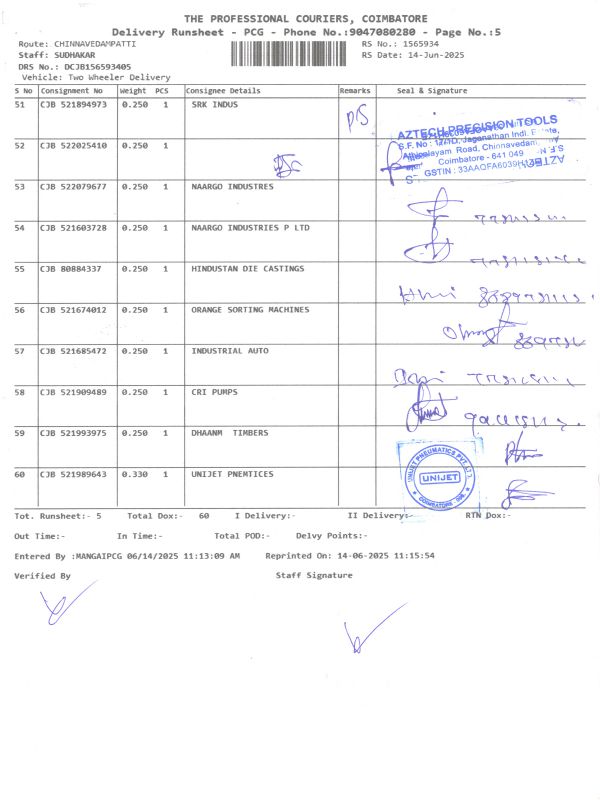 THE PROFESSIONAL COURIERS, COIMBATORE
Delivery Runsheet - PCG - Phone No.:9047080280 - Page No.:5
Route: CHINNAVEDAMPATTI RS No.: 1565934
Staff: SUDHAKAR RS Date: 14-Jun-2025
DRS No.: DCJB156593405
Vehicle: Two Wheeler Delivery
S No Consignment No Weight PCS Consignee Details Remarks Seal & Signature
51 CJB 521894973 0.250 1 SRK INDUS
AZTECH PRECISION TOOLS
52 CJB 522025410 0.250 1
Coimbatore - 641 049
GSTIN : 33AAQFA6039H1Z
53 CJB 522079677 0.250 1 NAARGO INDUSTRES
54 CJB 521603728 0.250 1 NAARGO INDUSTRIES P LTD
55 CJB 80884337 0.250 1 HINDUSTAN DIE CASTINGS
56 CJB 521674012 0.250 1 ORANGE SORTING MACHINES
57 CJB 521685472 0.250 1 INDUSTRIAL AUTO
58 CJB 521909489 0.250 1 CRI PUMPS
59 CJB 521993975 0.250 1 DHAANM TIMBERS
60 CJB 521989643 0.330 1 UNIJET PNEMTICES
UNIJET PNEUMATICS PVT LTD
UNIJET
COIMBATORE
Tot. Runsheet:- 5 Total Dox:- 60 I Delivery:- II Delivery:- RTN Dox:-
Out Time:- In Time:- Total POD:- Delvy Points:-
Entered By :MANGAIPCG 06/14/2025 11:13:09 AM Reprinted On: 14-06-2025 11:15:54
Verified By Staff Signature